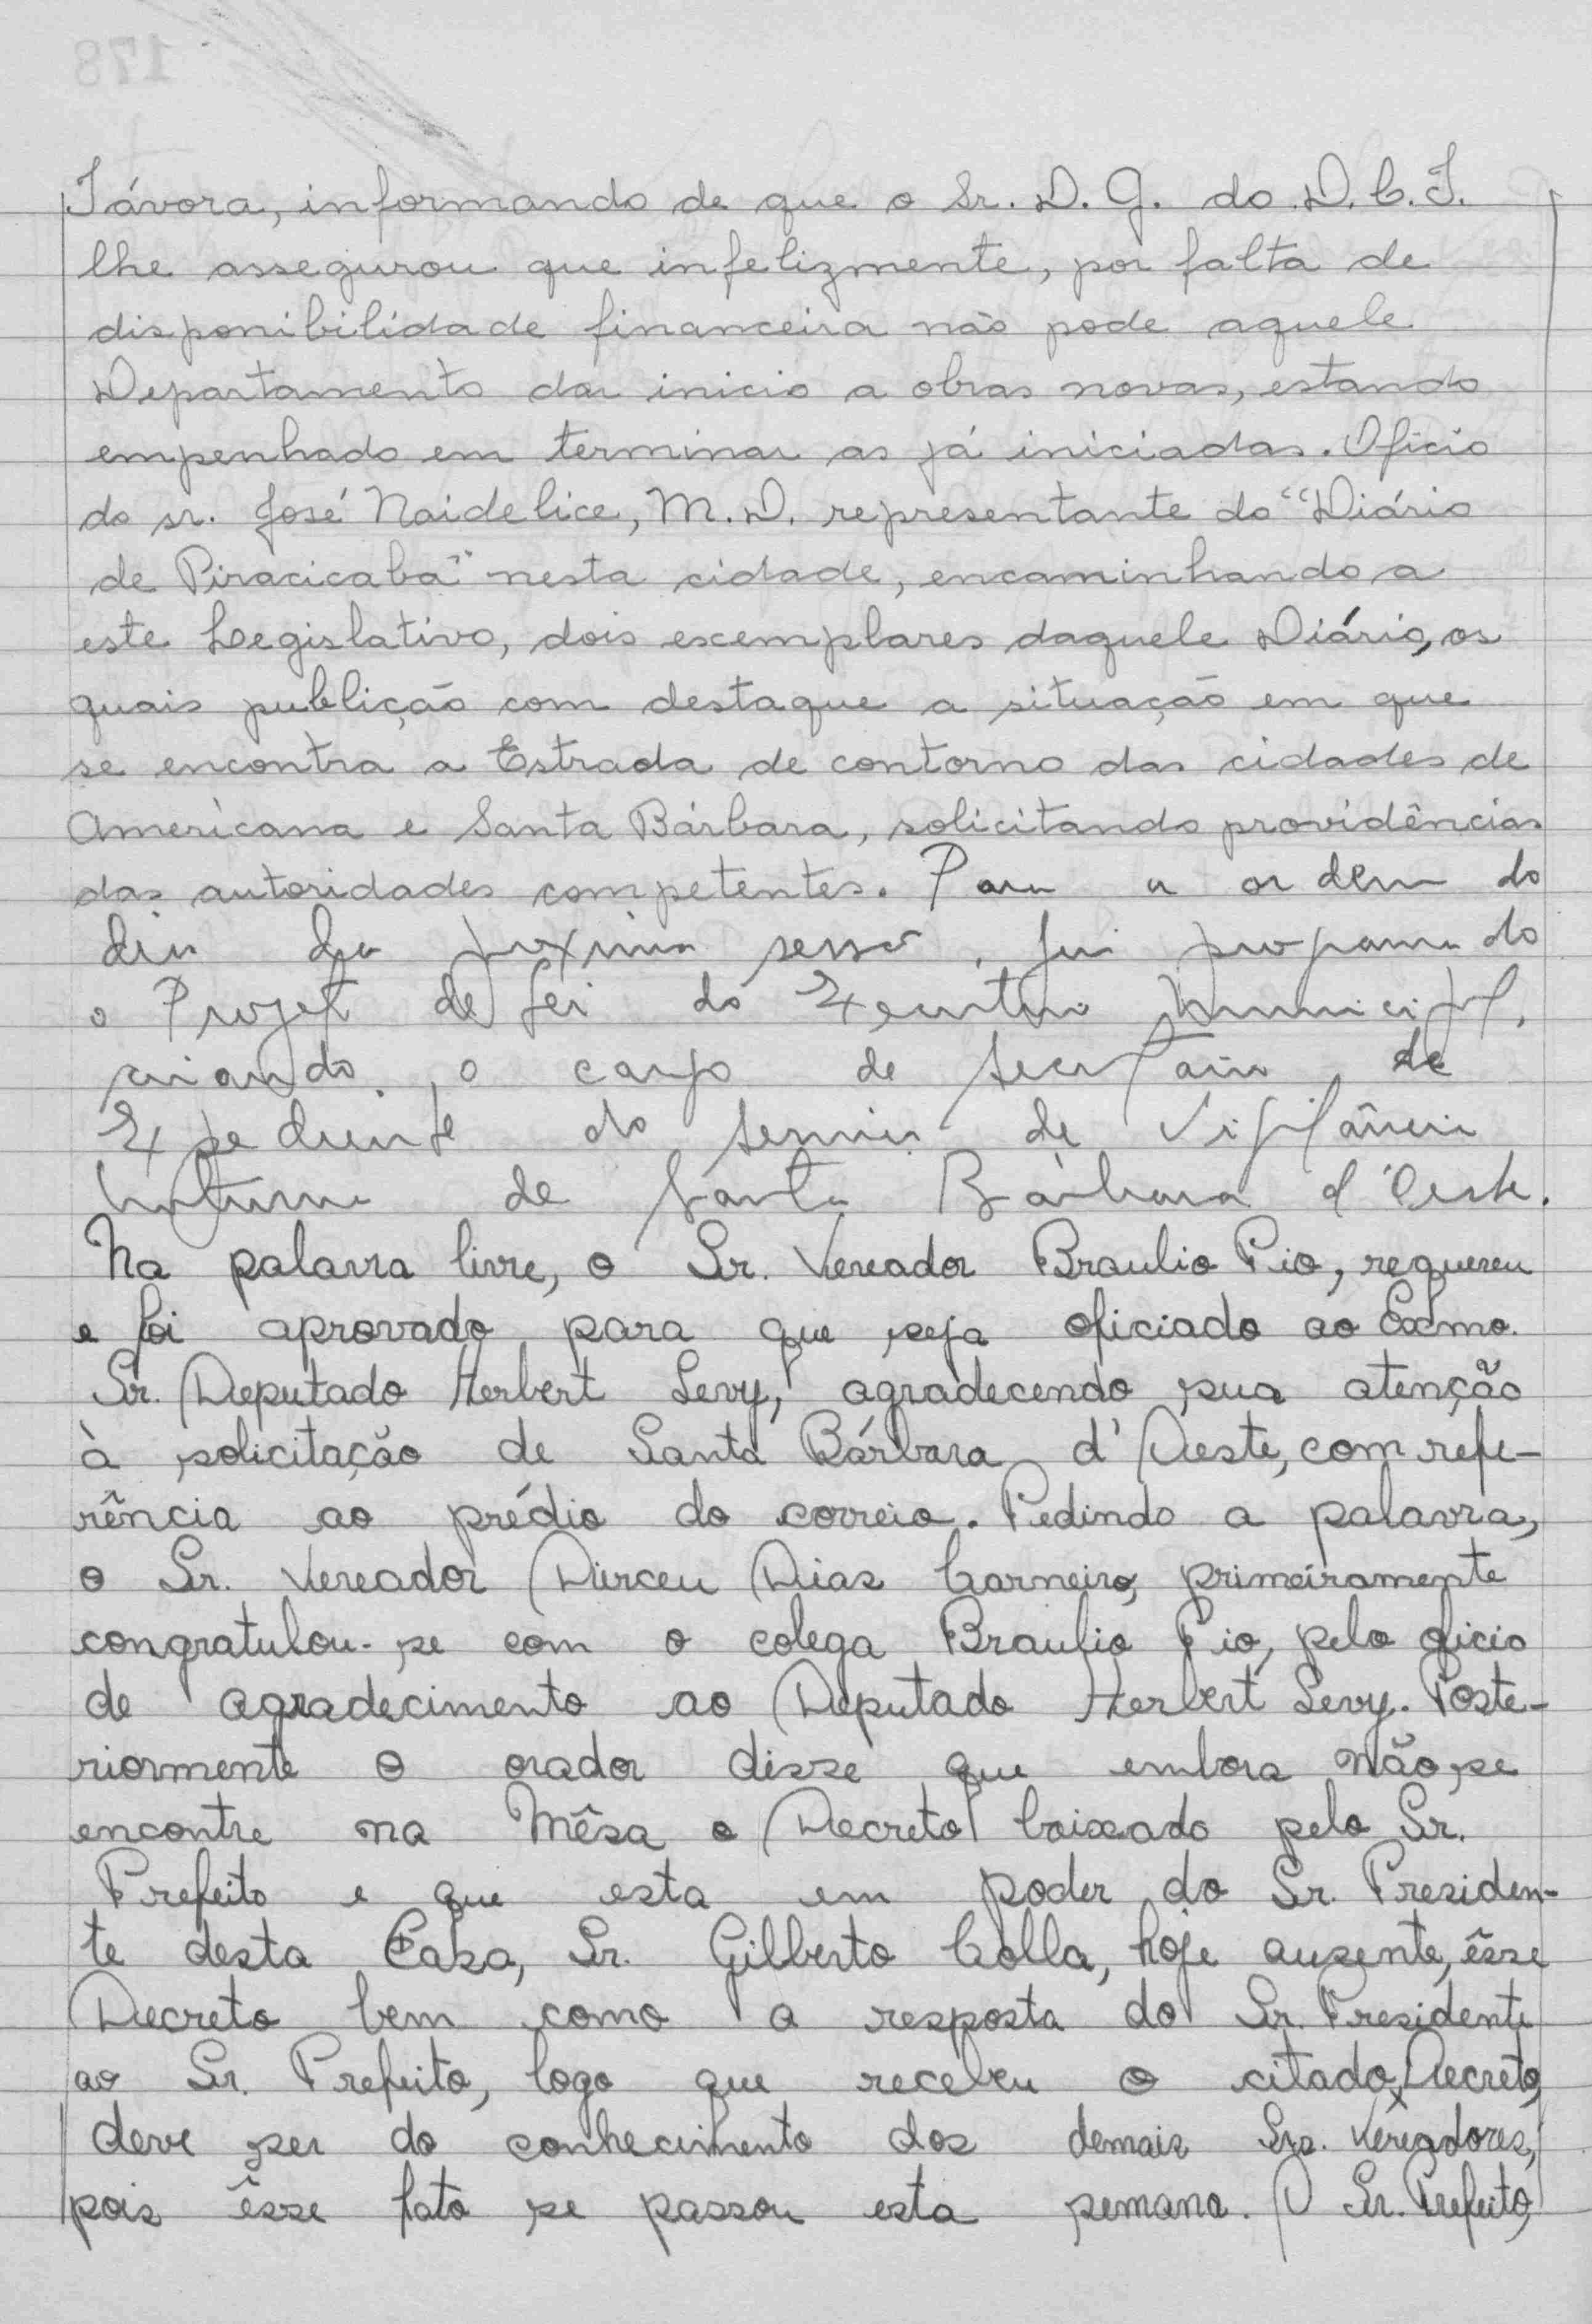 Távora, informando de que o Sr. D. G. do D.C.T.
lhe assegurou que infelizmente, por falta de
disponibilidade financeira não pode aquele
Departamento dar inicio a obras novas, estando
empenhado em terminar as já iniciadas. Oficio
do sr. José Naidelice, M.D. representante do "Diário
de Piracicaba" nesta cidade, encaminhando a
este Legislativo, dois exemplares daquele Diário, os
quais publição com destaque a situação em que
se encontra a Estrada de contorno das cidades de
Americana e Santa Bárbara, solicitando providências
das autoridades competentes. Para a ordem do
dia da proxima sessão, foi programado
o Projeto de Lei do Executivo Municipal,
criando, o cargo de Secretario de
Expediente do Serviço de Vigilância
Noturna de Santa Bárbara d'Oeste.
Na palavra livre, o Sr. Vereador Braulio Pio, requereu
e foi aprovado para que seja oficiado ao Exmo.
Sr. Deputado Herbert Levy, agradecendo sua atenção
à solicitação de Santa Bárbara d'Oeste, com refe-
rência ao prédio do correio. Pedindo a palavra,
o Sr. Vereador Dirceu Dias Carneiro, primeiramente
congratulou-se com o colega Braulio Pio, pelo oficio
de agradecimento ao Deputado Herbert Levy. Poste-
riormente o orador disse que embora não se
encontre na Mêsa o Decreto baixado pelo Sr.
Prefeito e que esta em poder do Sr. Presiden-
te desta Casa, Sr. Gilberto Colla, hoje ausente, êsse
Decreto bem como a resposta do Sr. Presidente
ao Sr. Prefeito, logo que recebeu o citado Decreto,
deve ser do conhecimento dos demais Srs. Vereadores,
pois êsse fato se passou esta semana. O Sr. Prefeito,